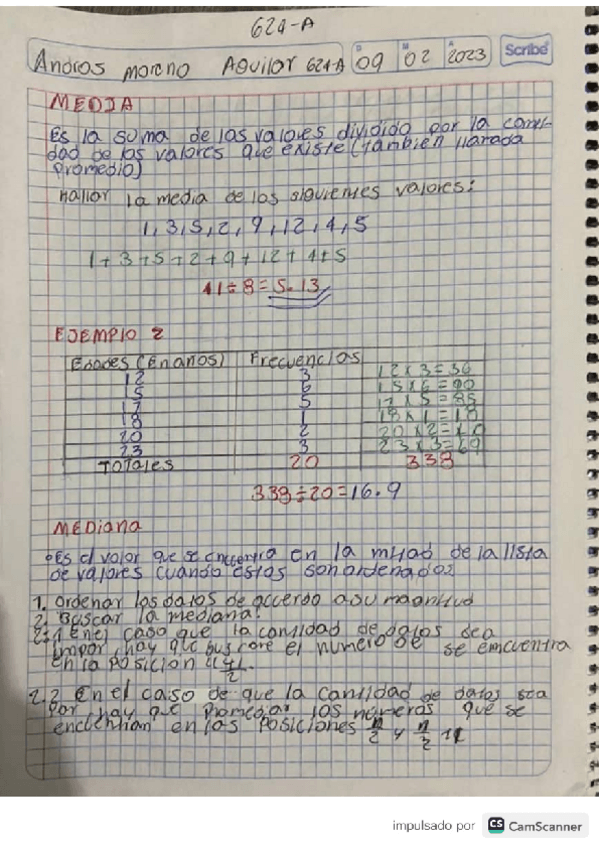 621-A
Andres moreno Aguilar 621-A 09 02 2023 Scribe
MEDIA
Es la suma de los valores dividido por la canti-
dad de los valores que existe (tambien llamada
promedio)
hallar la media de los siguientes valores:
1, 3, 5, 2, 9, 12, 4, 5
1+3+5+2+9+12+4+5
41÷8=5.13
EJEMPlO 2
Edades (En años) Frecuencias
12 3 12x3=36
15 6 15x6=90
17 5 17x5=85
18 1 18x1=18
20 2 20x2=40
23 3 23x3=69
TOTALES 20 338
338÷20=16.9
MEDiana
•Es el valor que se encuentra en la mitad de la lista
de valores cuando estos son ordenados
1. Ordenar los datos de acuerdo a su magnitud
2. Buscar la mediana:
2.1 En el caso que la cantidad de datos sea
impar, hay que buscare el numero se emcuentra
En la posicion
2.2 En el caso de que la cantidad de datos sea
Par hay que Promediar los números que se
encuentran en las posiciones n/2 y n/2 +1
impulsado por CS CamScanner